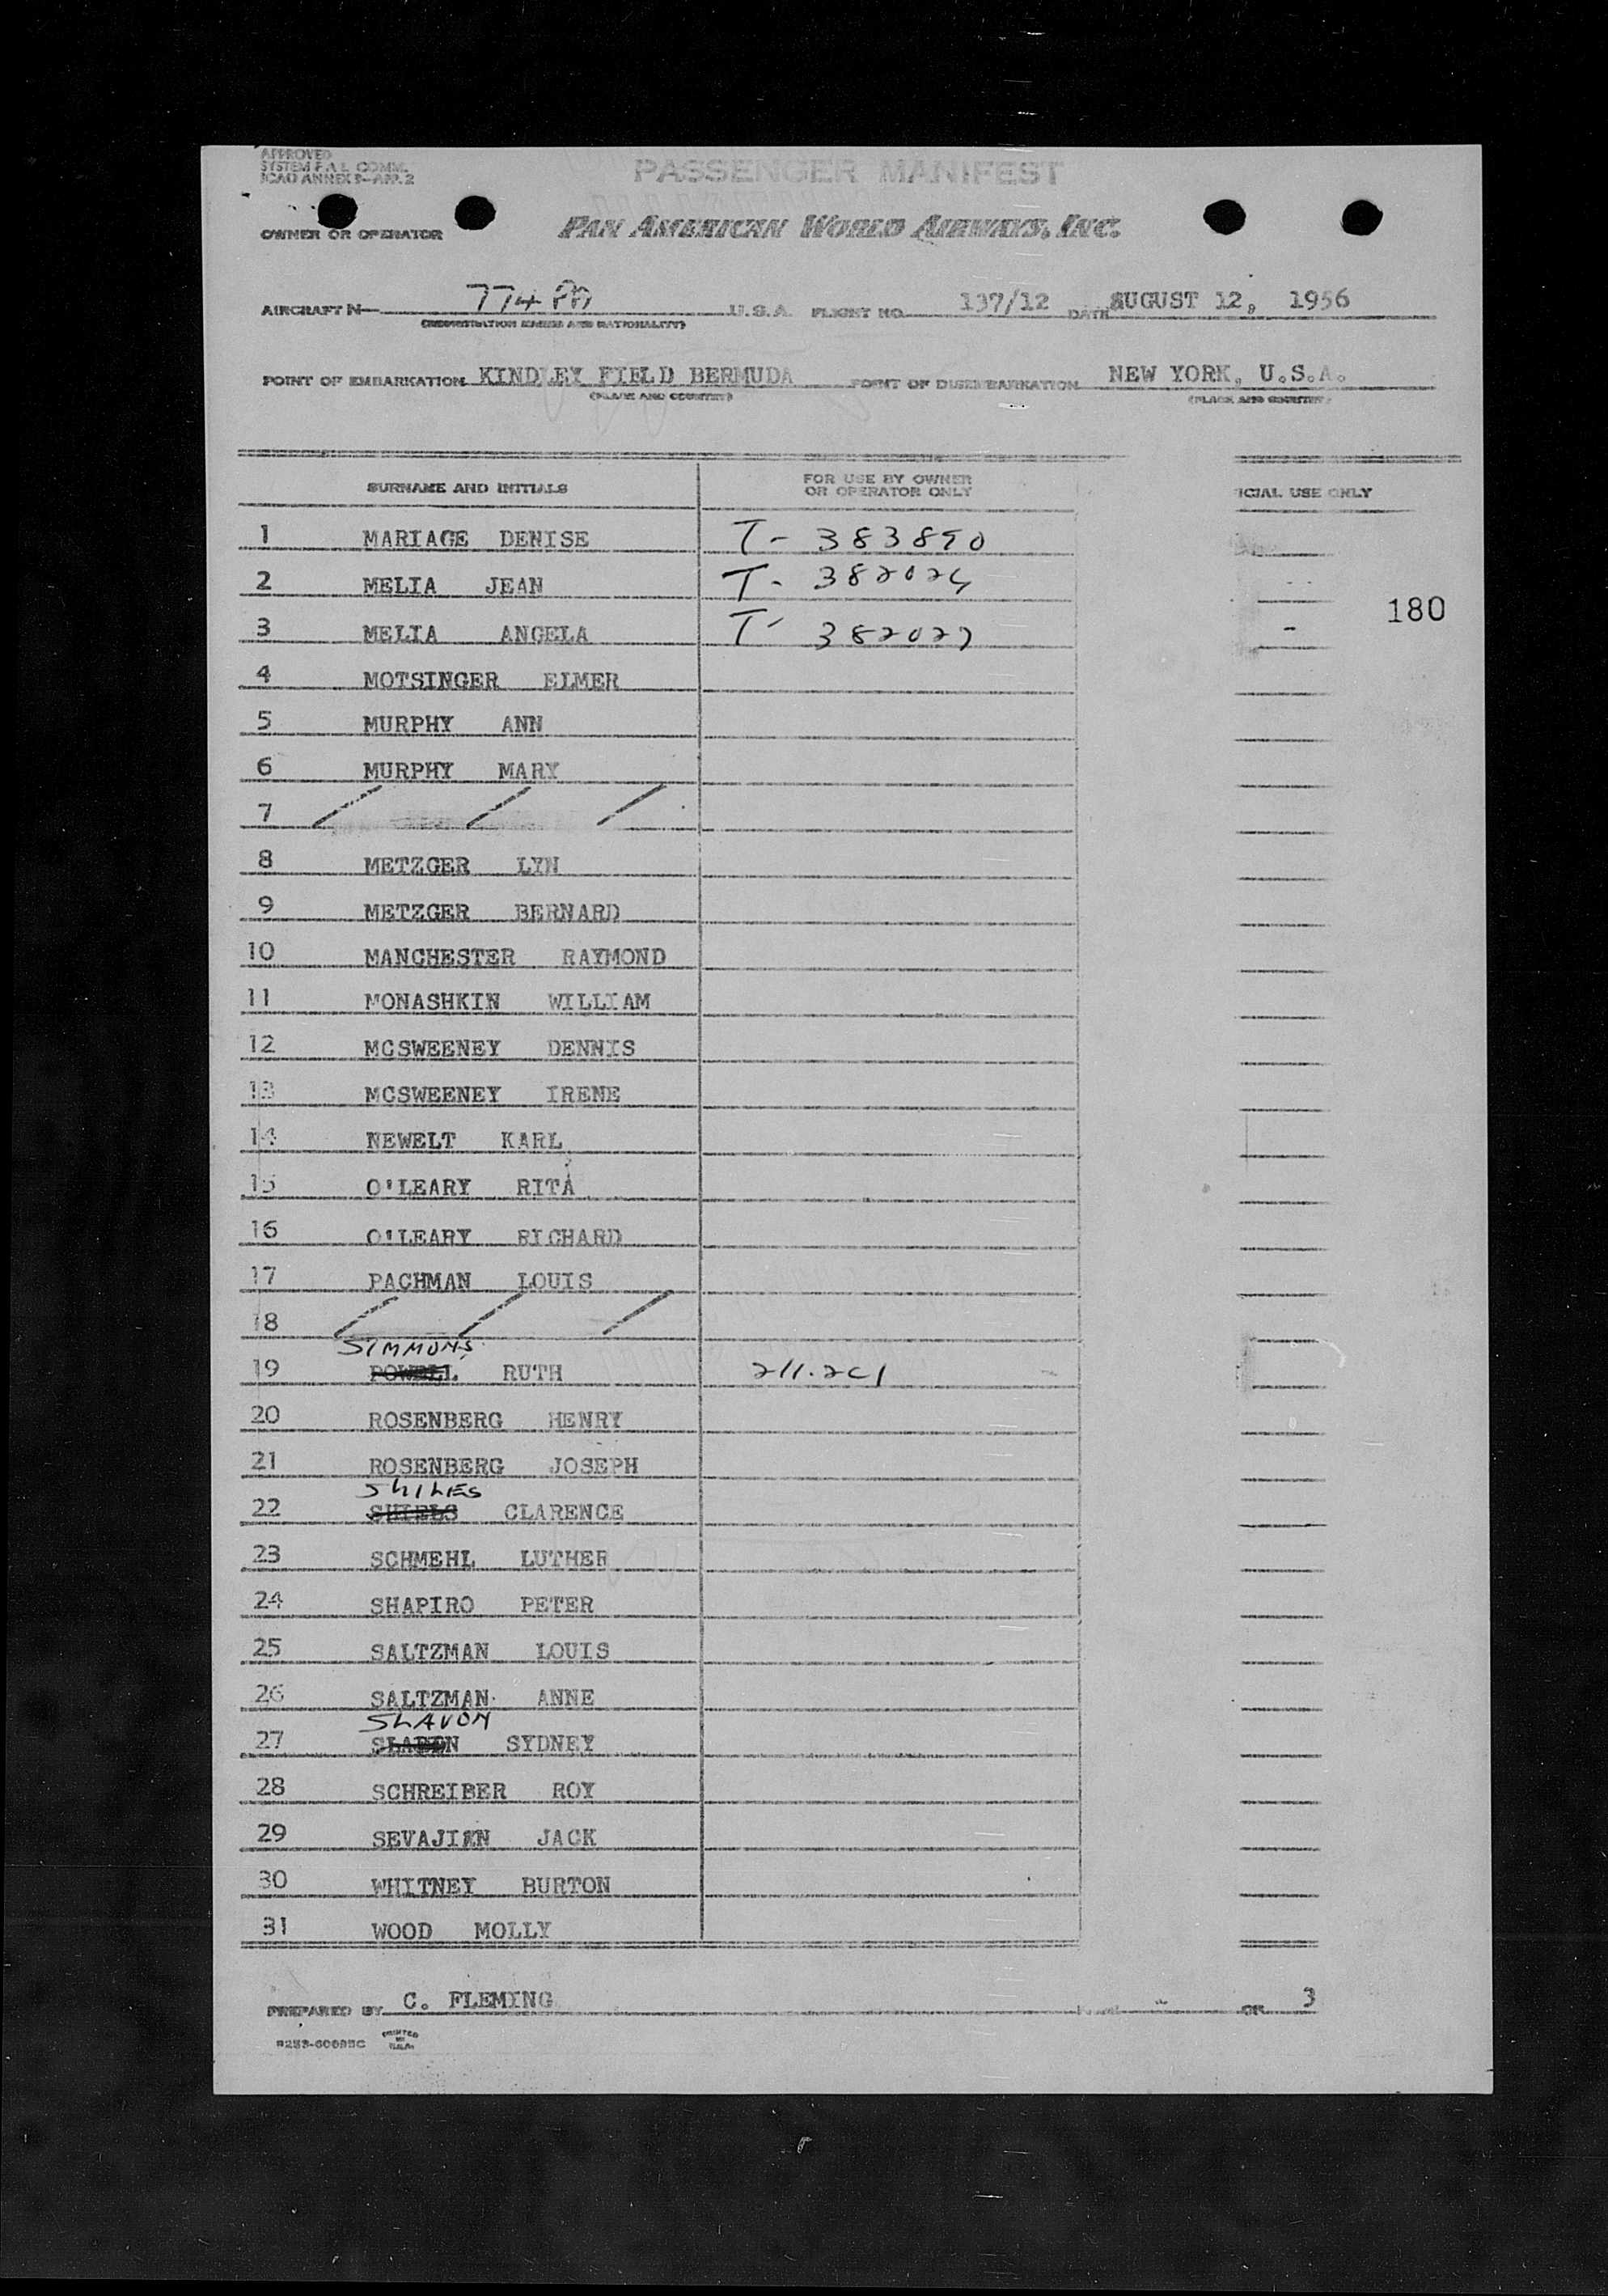 APPROVED
SYSTEM F.A.L. COMM.
ICAO ANNEX 9-APP. 2
PASSENGER MANIFEST
OWNER OR OPERATOR PAN AMERICAN WORLD AIRWAYS, INC.
AIRCRAFT N- 774 PA U.S.A. FLIGHT NO. 137/12 DATE AUGUST 12, 1956
(REGISTRATION MARKS AND NATIONALITY)
POINT OF EMBARKATION KINDLEY FIELD BERMUDA POINT OF DISEMBARKATION NEW YORK, U.S.A.
(PLACE AND COUNTRY) (PLACE AND COUNTRY)
SURNAME AND INITIALS FOR USE BY OWNER OR OPERATOR ONLY ICIAL USE ONLY
1 MARIAGE DENISE T- 383890
2 MELIA JEAN T-
180
3 MELIA ANGELA T-
4 MOTSINGER ELMER
5 MURPHY ANN
6 MURPHY MARY
7 / / /
8 METZGER LYN
9 METZGER BERNARD
10 MANCHESTER RAYMOND
11 MONASHKIN WILLIAM
12 MCSWEENEY DENNIS
13 MCSWEENEY IRENE
14 NEWELT KARL
15 O'LEARY RITA
16 O'LEARY RICHARD
17 PACHMAN LOUIS
18 / / /
SIMMONS
19 POWELL RUTH
20 ROSENBERG HENRY
21 ROSENBERG JOSEPH
22 SHIELS CLARENCE
23 SCHMEHL LUTHER
24 SHAPIRO PETER
25 SALTZMAN LOUIS
26 SALTZMAN ANNE
SLAVON
27 SYDNEY
28 SCHREIBER ROY
29 SEVAJIEN JACK
30 WHITNEY BURTON
31 WOOD MOLLY
PREPARED BY C. FLEMING OF 3
PRINTED
IN
U.S.A.